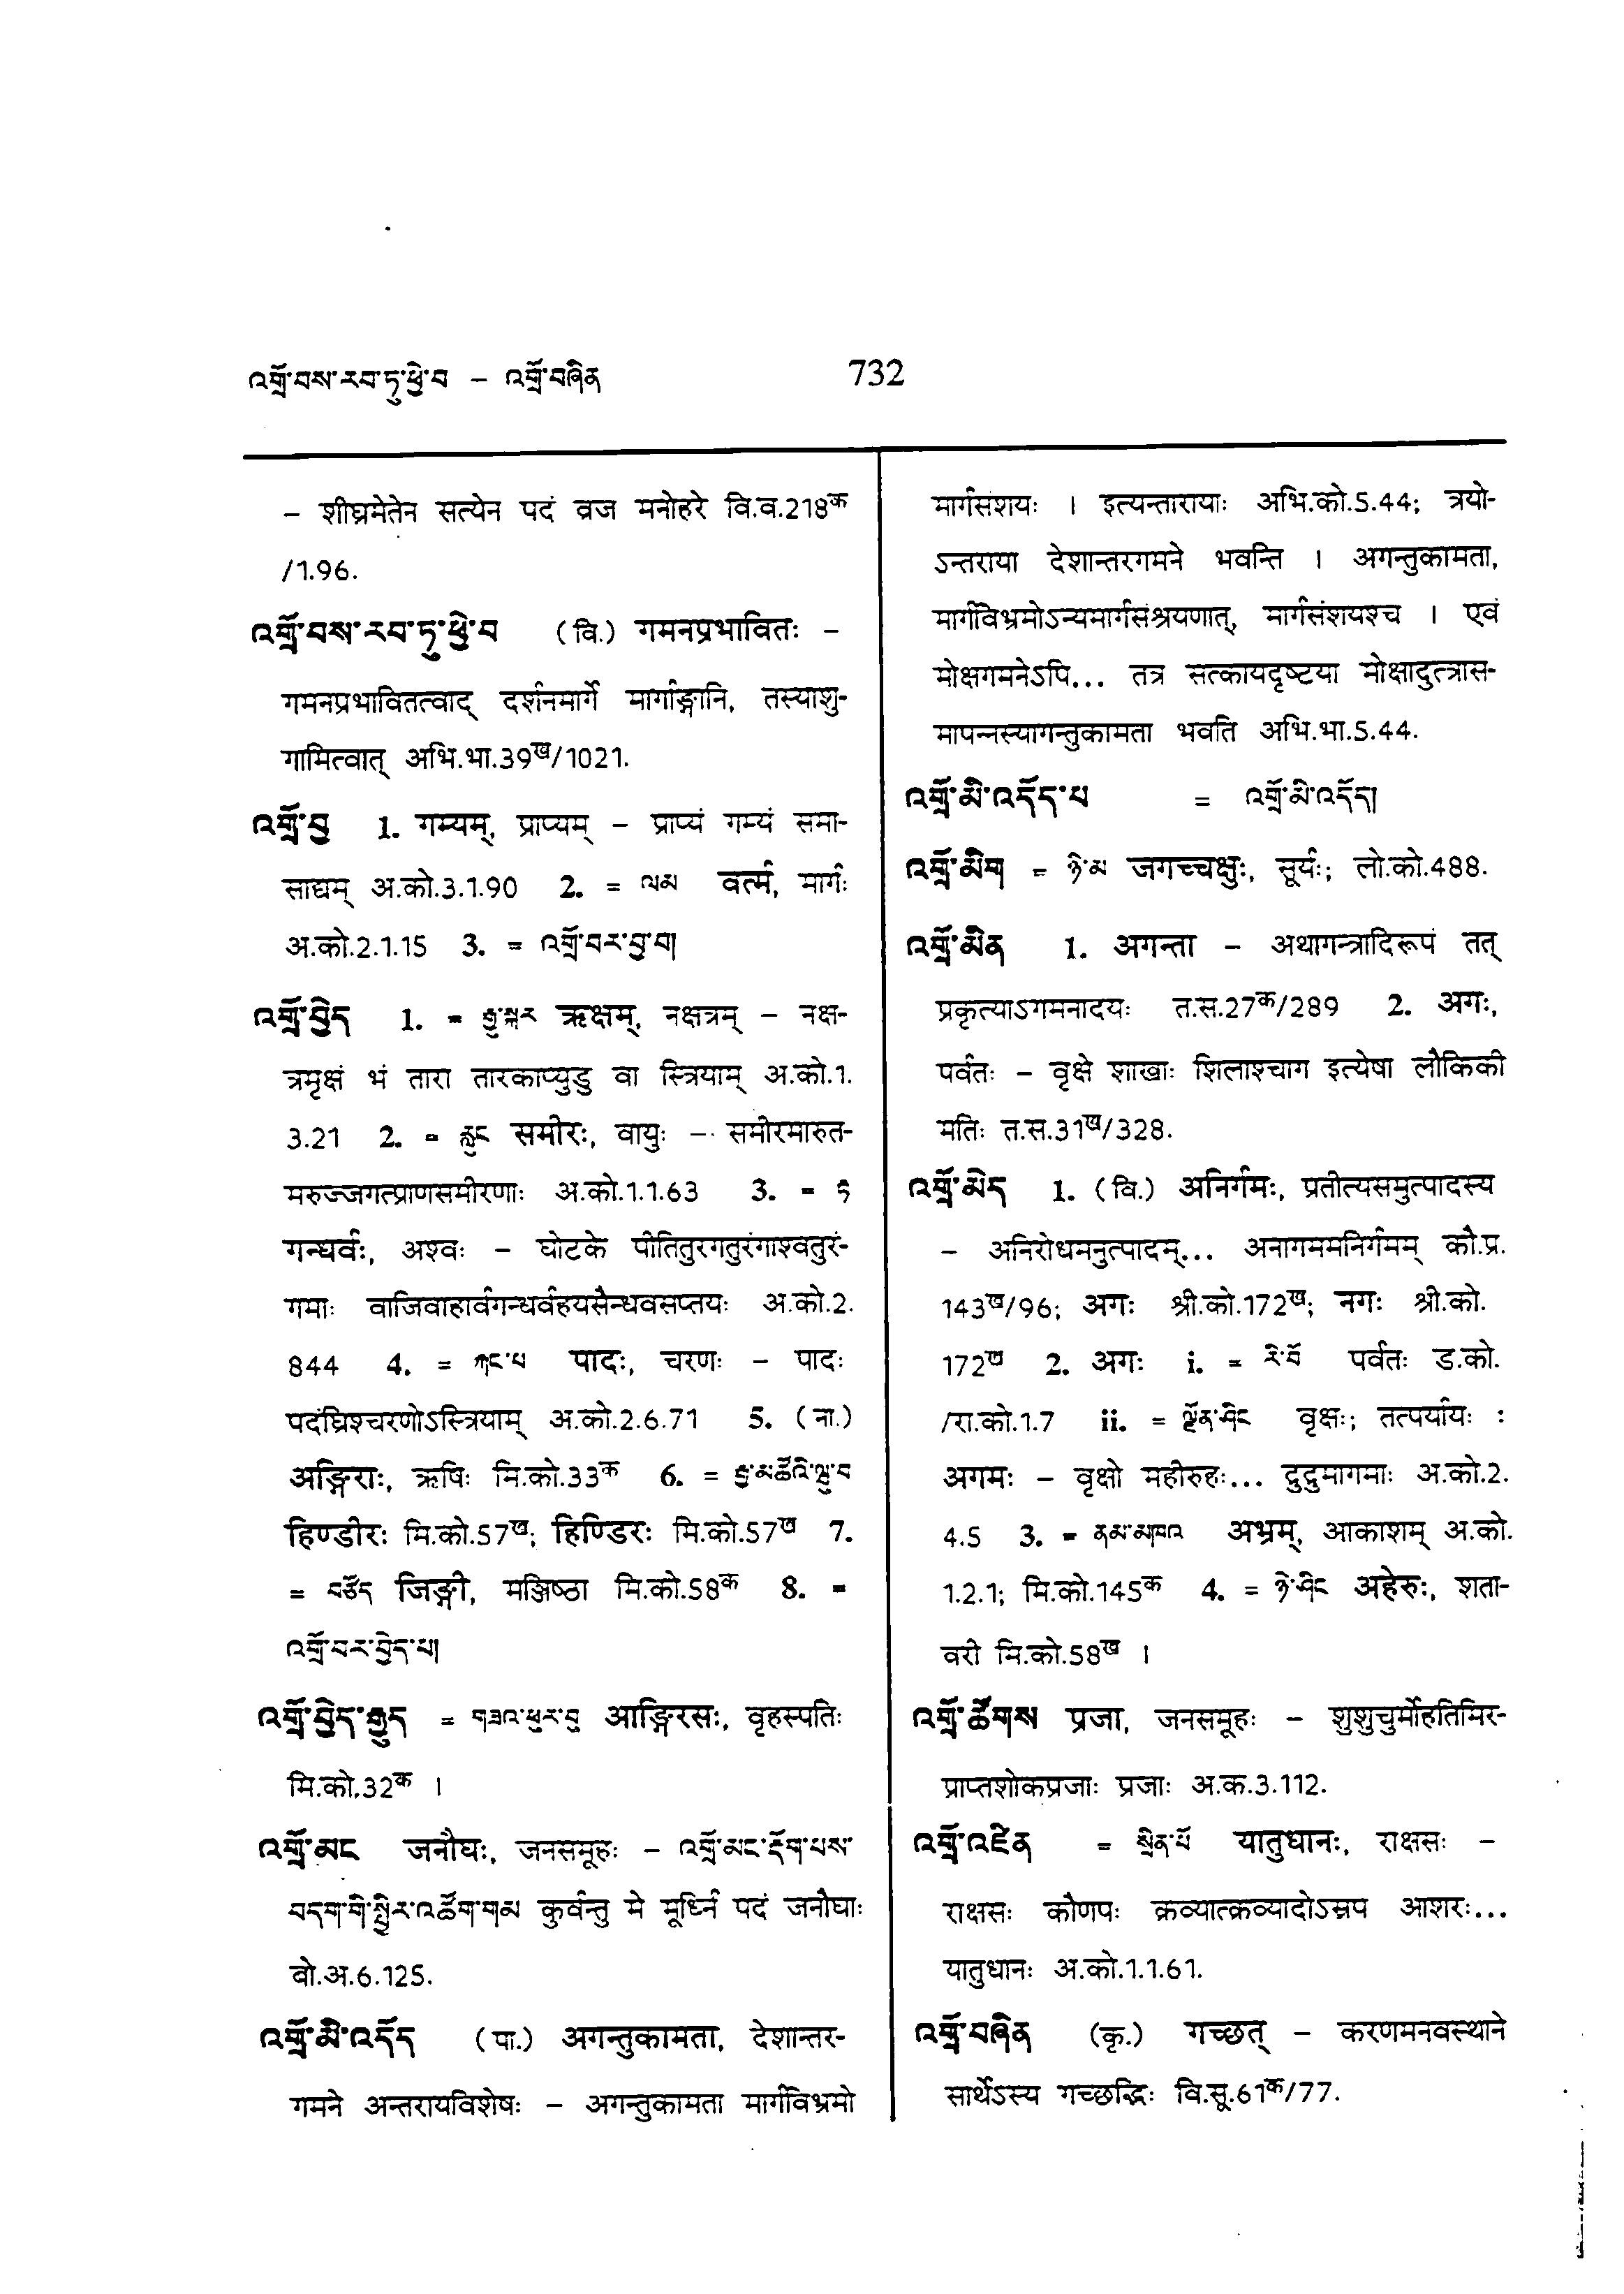 འགྲོ་བས་རབ་ཏུ་ཕྱེ་བ – འགྲོ་བཞིན 732
– शीघ्रमेतेन सत्येन पदं व्रज मनोहरे वि.व.218क
/1.96.
འགྲོ་བས་རབ་ཏུ་ཕྱེ་བ (वि.) गमनप्रभावितः –
गमनप्रभावितत्वाद् दर्शनमार्गे मार्गाङ्गानि, तस्याशु-
गामित्वात् अभि.भा.39ख/1021.
འགྲོ་བྱ 1. गम्यम्, प्राप्यम् – प्राप्यं गम्यं समा-
साद्यम् अ.को.3.1.90 2. = ལམ वर्त्म, मार्गः
अ.को.2.1.15 3. = འགྲོ་བར་བྱ་བ།
འགྲོ་བྱེད 1. = རྒྱུ་སྐར ऋक्षम्, नक्षत्रम् – नक्ष-
त्रमृक्षं भं तारा तारकाप्युडु वा स्त्रियाम् अ.को.1.
3.21 2. = རླུང समीरः, वायुः – समीरमारुत-
मरुज्जगत्प्राणसमीरणाः अ.को.1.1.63 3. = རྟ
गन्धर्वः, अश्वः – घोटके पीतितुरगतुरंगाश्वतुरं-
गमाः वाजिवाहार्वगन्धर्वहयसैन्धवसप्तयः अ.को.2.
844 4. = རྐང་པ पादः, चरणः – पादः
पदंघ्रिश्चरणोऽस्त्रियाम् अ.को.2.6.71 5. (ना.)
अङ्गिराः, ऋषिः मि.को.33क 6. = རྒྱ་མཚོའི་ལྦུ་བ
हिण्डीरः मि.को.57ख; हिण्डिरः मि.को.57ख 7.
= བཙོད जिङ्गी, मञ्जिष्ठा मि.को.58क 8. =
འགྲོ་བར་བྱེད་པ།
འགྲོ་བྱེད་རྒྱུད = གཟའ་ཕུར་བུ आङ्गिरसः, वृहस्पतिः
मि.को.32क ।
འགྲོ་མང जनौघः, जनसमूहः – འགྲོ་མང་རྡོག་པས་
བདག་གི་སྤྱིར་འཚོག་གམ कुर्वन्तु मे मूर्ध्नि पदं जनौघाः
बो.अ.6.125.
འགྲོ་མི་འདོད (पा.) अगन्तुकामता, देशान्तर-
गमने अन्तरायविशेषः – अगन्तुकामता मार्गविभ्रमो
मार्गसंशयः । इत्यन्तारायाः अभि.को.5.44; त्रयो-
ऽन्तराया देशान्तरगमने भवन्ति । अगन्तुकामता,
मार्गविभ्रमोऽन्यमार्गसंश्रयणात्, मार्गसंशयश्च । एवं
मोक्षगमनेऽपि... तत्र सत्कायदृष्टया मोक्षादुत्त्रास-
मापन्नस्यागन्तुकामता भवति अभि.भा.5.44.
འགྲོ་མི་འདོད་པ = འགྲོ་མི་འདོད།
འགྲོ་མིག = ཉི་མ जगच्चक्षुः, सूर्यः; लो.को.488.
འགྲོ་མིན 1. अगन्ता – अथागन्त्रादिरूपं तत्
प्रकृत्याऽगमनादयः त.स.27क/289 2. अगः,
पर्वतः – वृक्षे शाखाः शिलाश्चाग इत्येषा लौकिकी
मतिः त.स.31ख/328.
འགྲོ་མེད 1. (वि.) अनिर्गमः, प्रतीत्यसमुत्पादस्य
– अनिरोधमनुत्पादम्... अनागममनिर्गमम् कौ.प्र.
143ख/96; अगः श्री.को.172ख; नगः श्री.को.
172ख 2. अगः i. = རི་བོ पर्वतः ड.को.
/रा.को.1.7 ii. = ལྗོན་ཤིང वृक्षः; तत्पर्यायः :
अगमः – वृक्षो महीरुहः... द्रुद्रुमागमाः अ.को.2.
4.5 3. = ནམ་མཁའ अभ्रम्, आकाशम् अ.को.
1.2.1; मि.को.145क 4. = ཉེ་ཤིང अहेरुः, शता-
वरी मि.को.58ख ।
འགྲོ་ཚོགས प्रजा, जनसमूहः – शुशुचुर्मोहतिमिर-
प्राप्तशोकप्रजाः प्रजाः अ.क.3.112.
འགྲོ་འཛིན = སྲིན་པོ यातुधानः, राक्षसः –
राक्षसः कौणपः क्रव्यात्क्रव्यादोऽस्रप आशरः...
यातुधानः अ.को.1.1.61.
འགྲོ་བཞིན (कृ.) गच्छत् – करणमनवस्थाने
सार्थेऽस्य गच्छद्भिः वि.सू.61क/77.